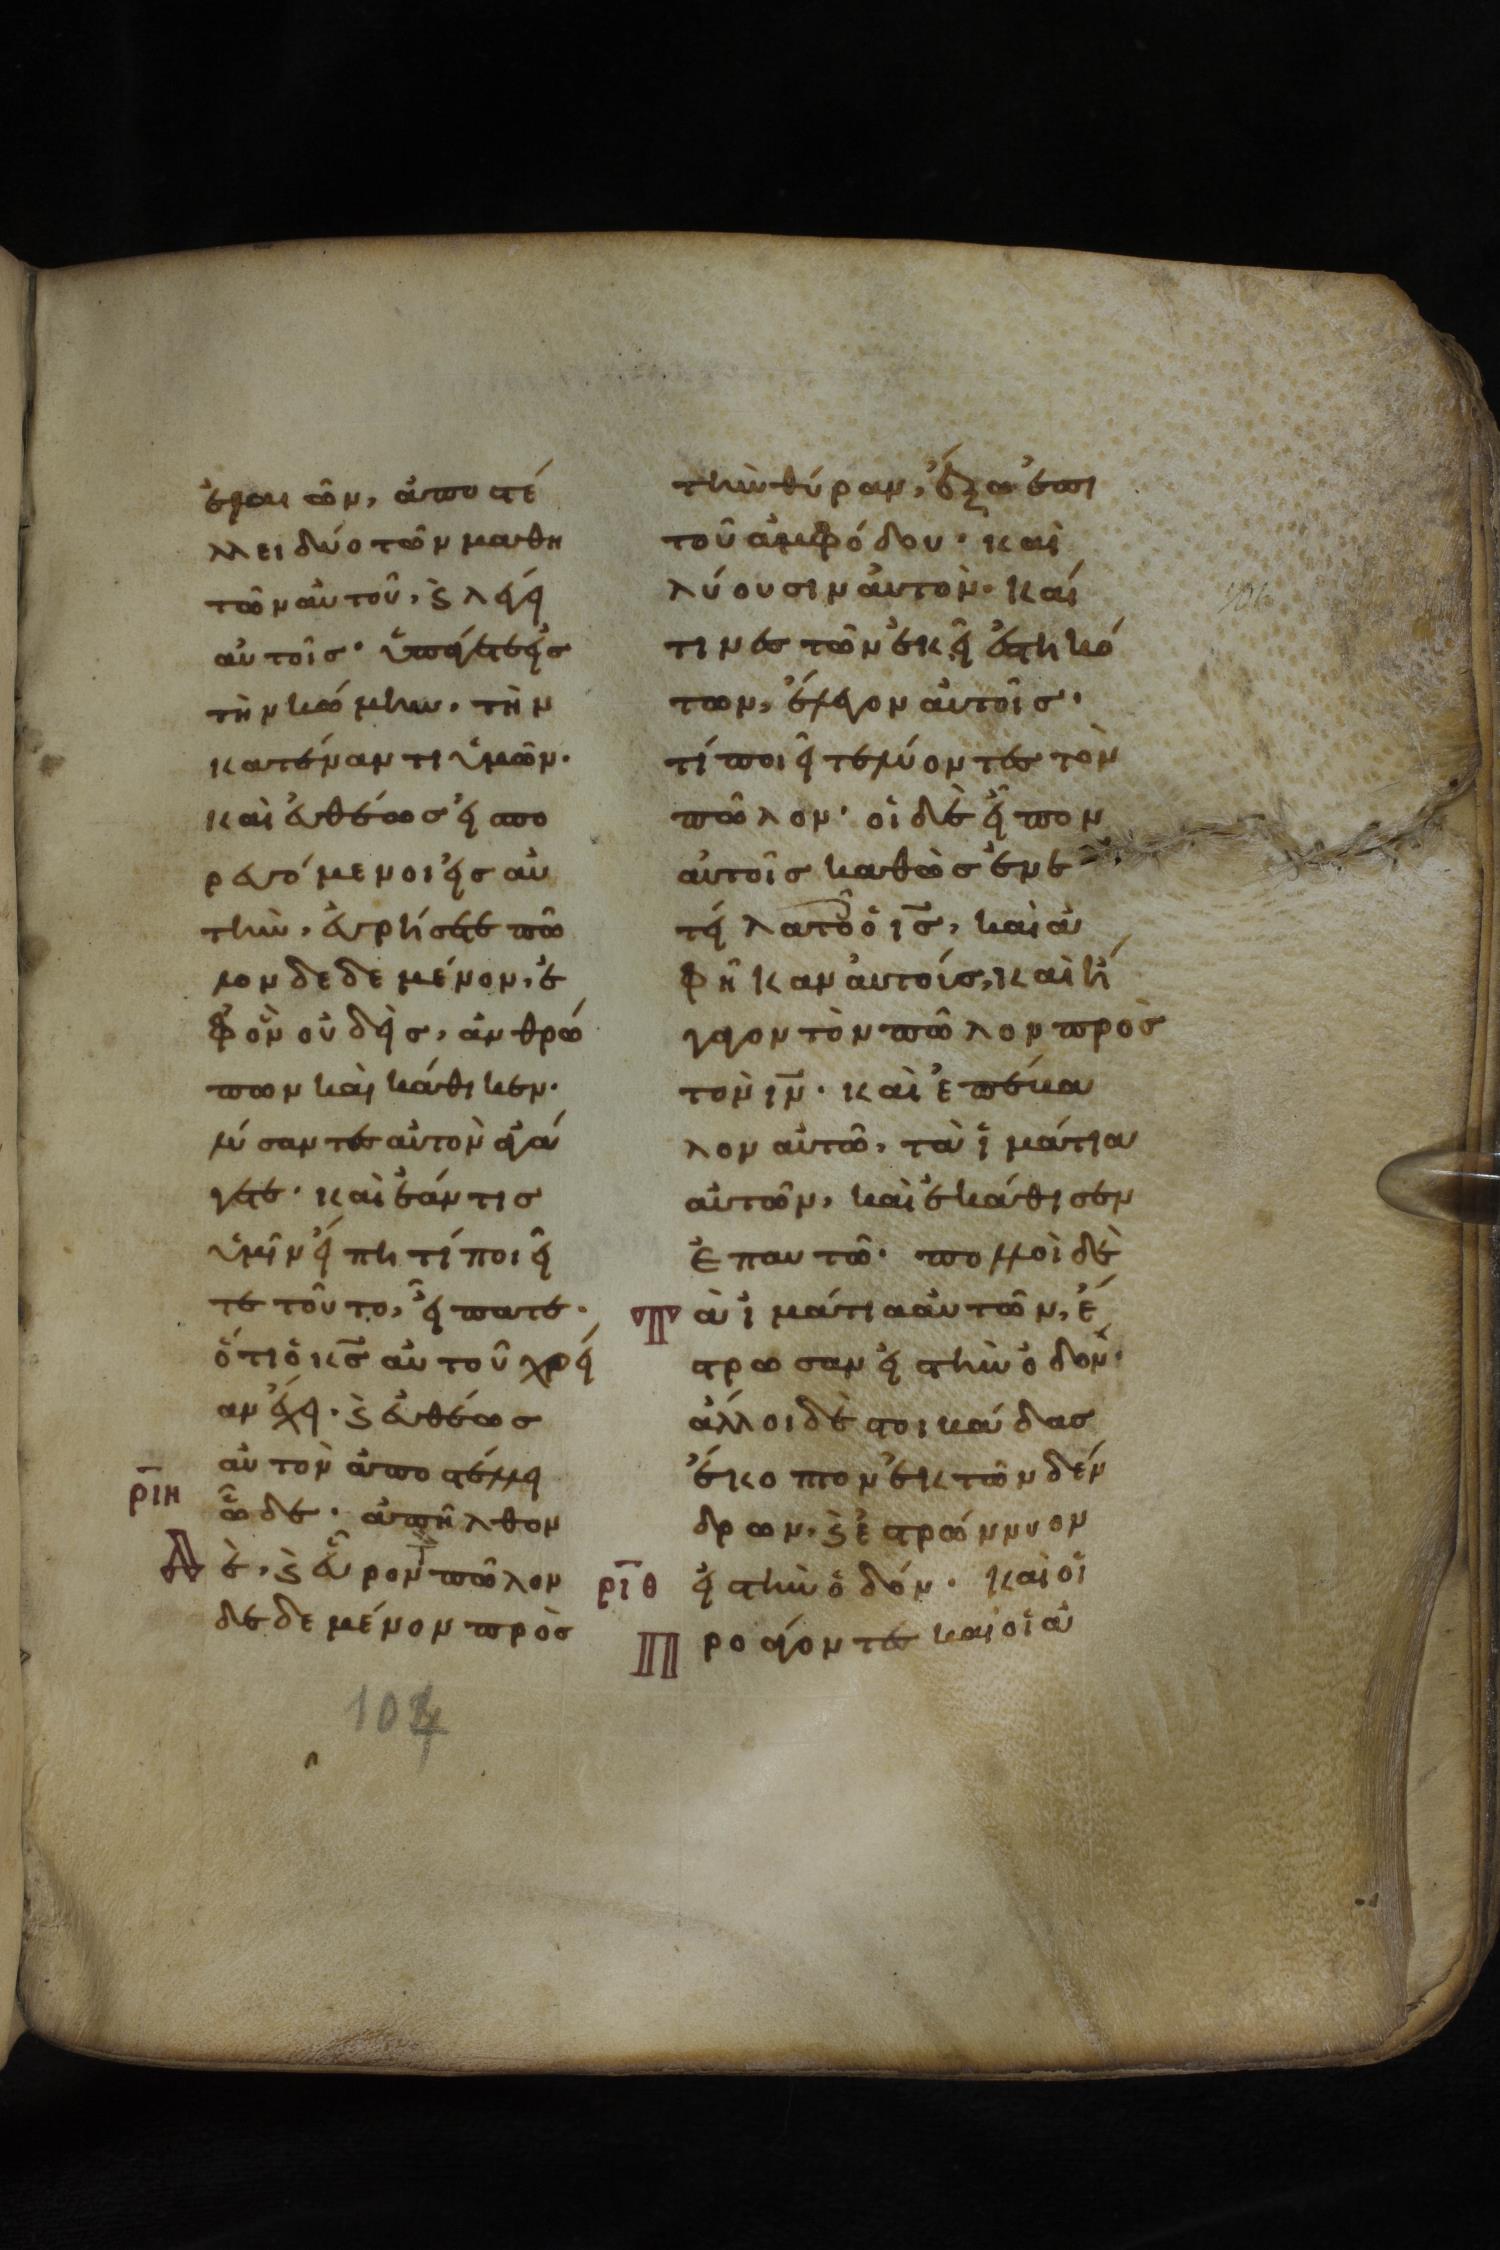 ἐλαιῶν, ἀποστέ
λλει δύο τῶν μαθη
τῶν αὐτοῦ, ϗ λέγει
αὐτοῖς· ὑπάγετε εἰς
τὴν κώμην, τὴν
κατέναντι ὑμῶν·
καὶ εὐθέως εἰσπο
ρευόμενοι εἰς αὐ
τὴν, εὑρήσετε πῶ
λον δεδεμένον, ἐ
φ ὃν οὐδεὶς, ἀνθρώ
πων καὶ κάθικεν·
λύσαντες αὐτὸν ἀγά
γετε· καὶ ἐάν τις
ὑμῖν εἴπη τί ποιεῖ
τε τοῦτο, εἴπατε·
ὅτι ὁ κ̅ς̅ αὐτοῦ χρεί
αν ἔχει· ϗ εὐθέως
αὐτὸν ἀποστέλλει
ρ̅ι̅η ὧδε· ἀπῆλθον
Δὲ, ϗ εὗρον τ πῶλον
δεδεμένον πρὸς
104
τὴν θύραν, ἔξω ἐπὶ
τοῦ ἀμφόδου· καὶ
λύουσιν αὐτὸν· καί
τινες τῶν ἐκεῖ ἑστηκό
των, ἔλεγον αὐτοῖς·
τί ποιεῖτε λύοντες τὸν
πῶλον· οἱ δὲ εἶπον
αὐτοῖς καθὼς ἐνε
τείλατο ὁ ι̅ς̅, καὶ ἀ
φῆκαν αὐτοίς, καὶ ἤ
γαγον τὸν πῶλον πρὸς
τὸν ι̅ν̅· καὶ ἐπέκα
λον αὐτῶ, τὰ ἱμάτια
αὐτῶν, καὶ ἐκάθισεν
ἐπ αυτῶ· πολλοὶ δὲ
Τὰ ἱμάτια αὐτῶν, ἔ
στρωσαν εἰς τὴν ὁδὸν·
ἄλλοι δὲ στοικάδας
ἔκοπτον ἐκ τῶν δέν
δρων, ϗ ἐστρώννυον
ρ̅ι̅θ εἰς τὴν ὁδόν· καὶ οἱ
Προάγοντες καὶ οἱ ἀ